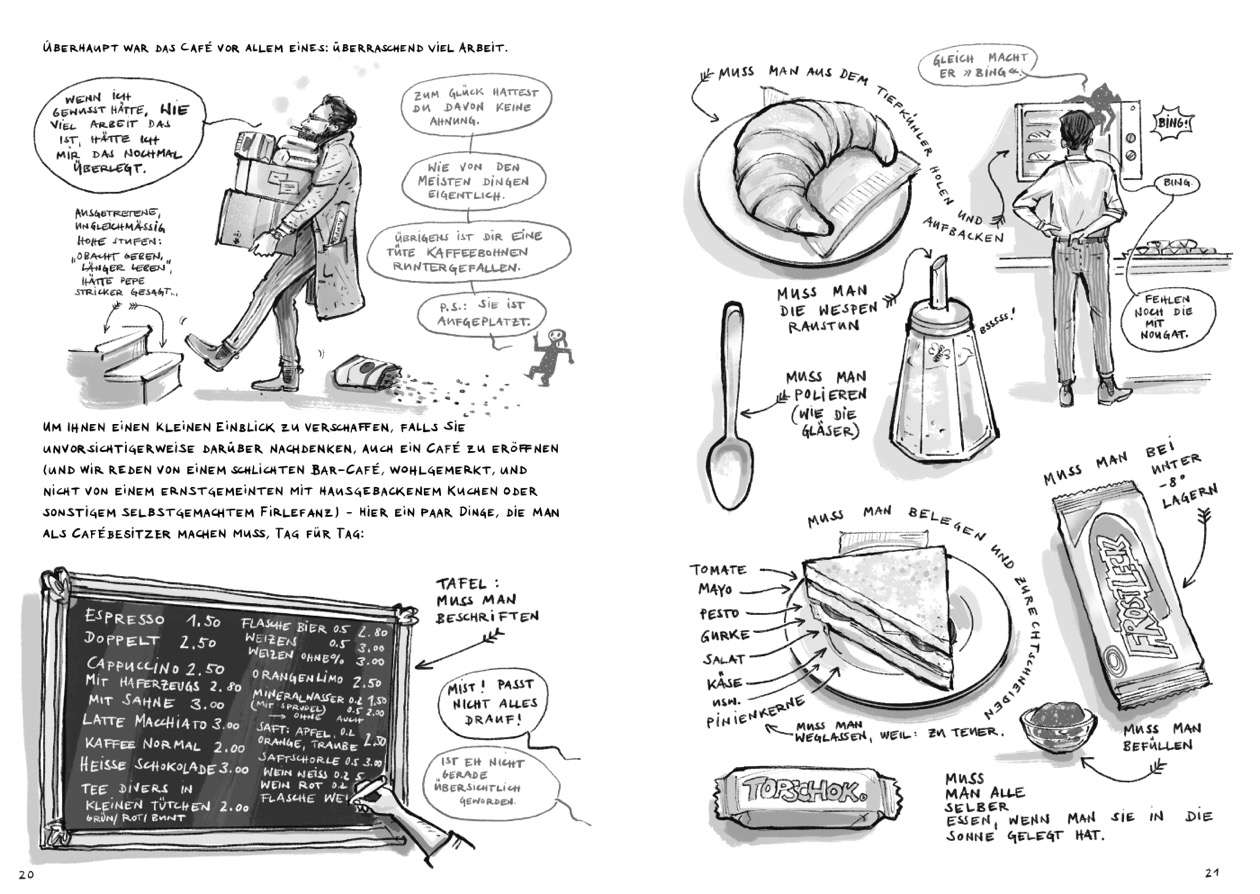 ÜBERHAUPT WAR DAS CAFÉ VOR ALLEM EINES: ÜBERRASCHEND VIEL ARBEIT.
WENN ICH
GEWUSST HÄTTE, WIE
VIEL ARBEIT DAS
IST, HÄTTE ICH
MIR DAS NOCHMAL
ÜBERLEGT.
ZUM GLÜCK HATTEST
DU DAVON KEINE
AHNUNG.
WIE VON DEN
MEISTEN DINGEN
EIGENTLICH.
ÜBRIGENS IST DIR EINE
TÜTE KAFFEEBOHNEN
RUNTERGEFALLEN.
P.S.: SIE IST
AUFGEPLATZT.
AUSGETRETENE,
UNGLEICHMÄSSIG
HOHE STUFEN:
„OBACHT GEBEN,
LÄNGER LEBEN",
HÄTTE PEPE
STRICKER GESAGT...
UM IHNEN EINEN KLEINEN EINBLICK ZU VERSCHAFFEN, FALLS SIE
UNVORSICHTIGERWEISE DARÜBER NACHDENKEN, AUCH EIN CAFÉ ZU ERÖFFNEN
(UND WIR REDEN VON EINEM SCHLICHTEN BAR-CAFÉ, WOHLGEMERKT, UND
NICHT VON EINEM ERNSTGEMEINTEN MIT HAUSGEBACKENEM KUCHEN ODER
SONSTIGEM SELBSTGEMACHTEM FIRLEFANZ) – HIER EIN PAAR DINGE, DIE MAN
ALS CAFÉBESITZER MACHEN MUSS, TAG FÜR TAG:
ESPRESSO 1.50
DOPPELT 2.50
CAPPUCCINO 2.50
MIT HAFERZEUGS 2.80
MIT SAHNE 3.00
LATTE MACCHIATO 3.00
KAFFEE NORMAL 2.00
HEISSE SCHOKOLADE 3.00
TEE DIVERS IN
KLEINEN TÜTCHEN 2.00
GRÜN/ROT/BUNT
FLASCHE BIER 0.5 2.80
WEIZEN 0.5 3.00
WEIZEN OHNE% 3.00
ORANGENLIMO 2.50
MINERALWASSER 0.2 1.50
(MIT SPRUDEL) 0.5 2.00
→ OHNE AUCH
SAFT: APFEL, 0.2
ORANGE, TRAUBE 2.50
SAFTSCHORLE 0.5 3.00
WEIN WEISS 0.2 5
WEIN ROT 0.2
FLASCHE WEI
TAFEL:
MUSS MAN
BESCHRIFTEN
MIST! PASST
NICHT ALLES
DRAUF!
IST EH NICHT
GERADE
ÜBERSICHTLICH
GEWORDEN.
20
MUSS MAN AUS DEM TIEFKÜHLER HOLEN UND AUFBACKEN
GLEICH MACHT
ER »BING«.
BING!
BING.
FEHLEN
NOCH DIE
MIT
NOUGAT.
MUSS MAN
DIE WESPEN
RAUSTUN
BSSSSS!
MUSS MAN
POLIEREN
(WIE DIE
GLÄSER)
MUSS MAN BEI
UNTER
-8°
LAGERN
FROSTLECK
MUSS MAN BELEGEN UND ZURECHTSCHNEIDEN
TOMATE
MAYO
PESTO
GURKE
SALAT
KÄSE
USW.
PINIENKERNE
MUSS MAN
WEGLASSEN, WEIL: ZU TEUER.
MUSS MAN
BEFÜLLEN
TOPSCHOK
MUSS
MAN ALLE
SELBER
ESSEN, WENN MAN SIE IN DIE
SONNE GELEGT HAT.
21